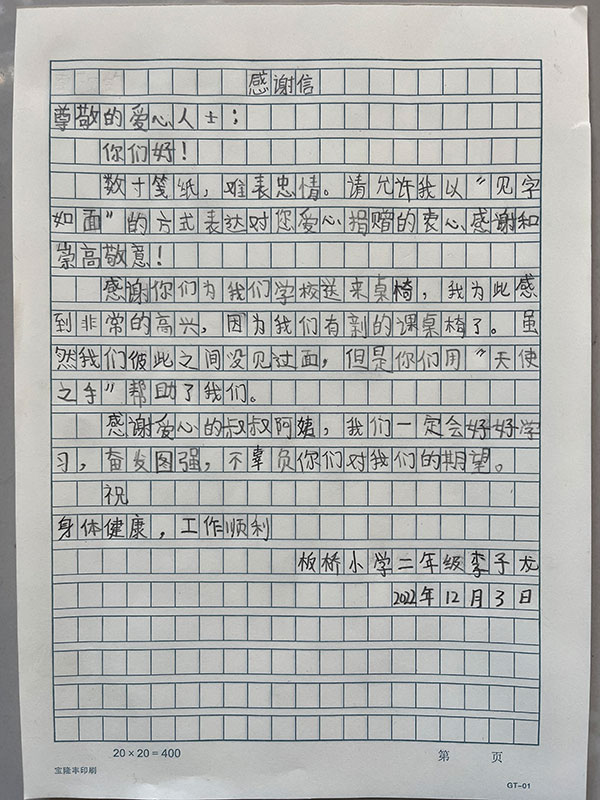 感谢信
尊敬的爱心人士：
你们好！
数寸笺纸，难表忠情。请允许我以“见字
如面”的方式表达对您爱心捐赠的衷心感谢和
崇高敬意！
感谢你们为我们学校送来桌椅，我为此感
到非常的高兴，因为我们有新的课桌椅了。虽
然我们彼此之间没见过面，但是你们用“天使
之手”帮助了我们。
感谢爱心的叔叔阿姨，我们一定会好好学
习，奋发图强，不辜负你们对我们的期望。
祝
身体健康，工作顺利
板桥小学二年级李子龙
2022年12月3日
20×20=400
第 页
宝隆本印刷
GT-01